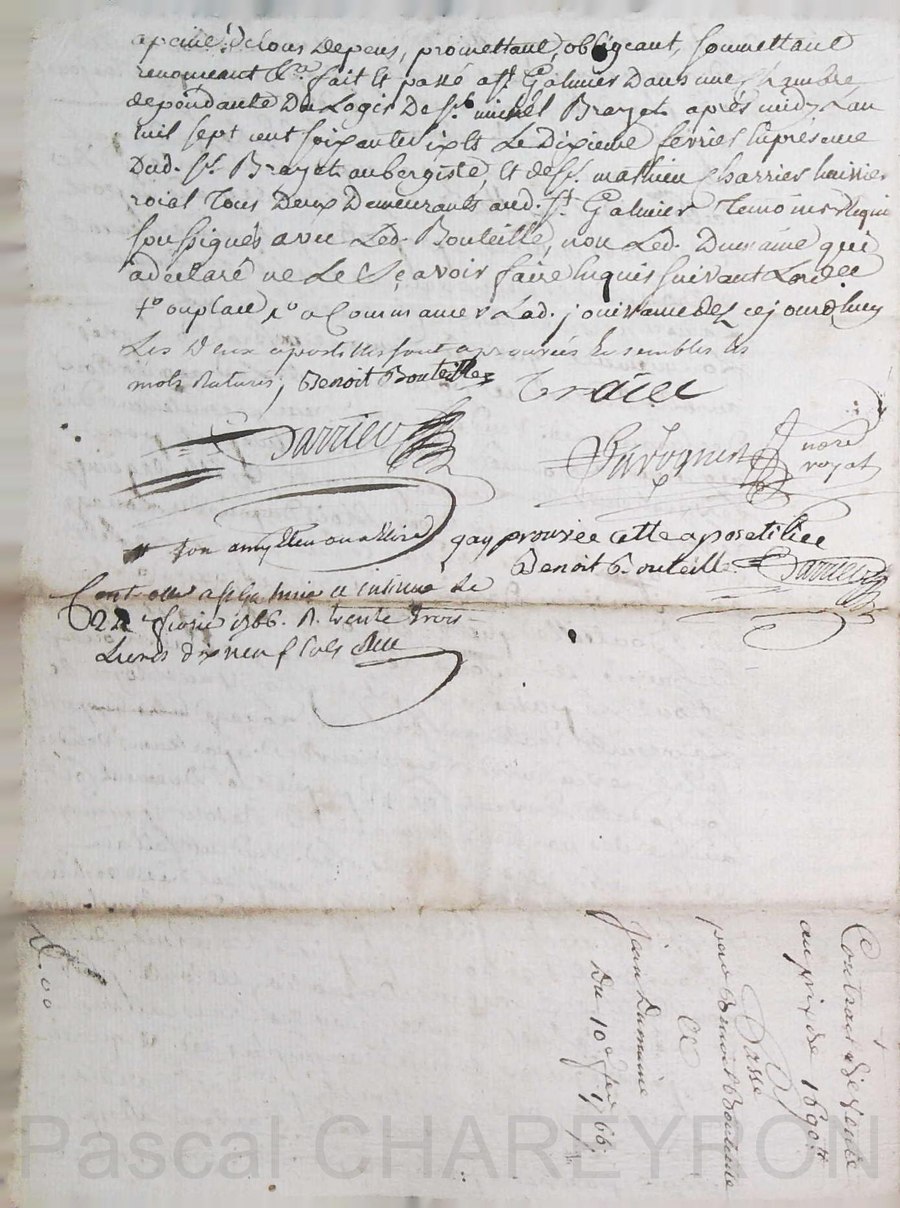 a peine de tous depens, promettant, obligeant, soumettant
renonceant &.ra fait et passé a St. Galmier dans une chambre
dependante du Logis de Sr. michel Brazet apres midy Lan
mil sept cent soixante six Le Dixieme fevrier En presence
Dud. Sr. Brazet aubergiste, et de Sr. mathieu Charrier huissier
roial Tous Deux Demeurants aud. St. Galmier Temoins Requis
soussignés avec Led. Bouteille, non Led. Dumaine qui
a déclaré ne Le Sçavoir faire Enquis suivant Lord.ce
1.o ou place 1.o a Commancer Lad. jouissance dez cejourdhuy
Les Deux apostilles sont aprouvées Ensembles les
mots Raturés, Benoit Bouteille
Charrier
notre
royal
# son amy Eleu ou a Elire gay prouvée cette apostiliee
Benoit Bouteille Charrier
Controllé a St. galmier
22 fevrier 1766. R. trente trois
Livres dix neuf sols
Contrat de Vente
au prix de 1690.tt
Passé
par Benoit Bouteille
a
Jean Dumaine
Du 10.e fer. 1766.
Pascal CHAREYRON